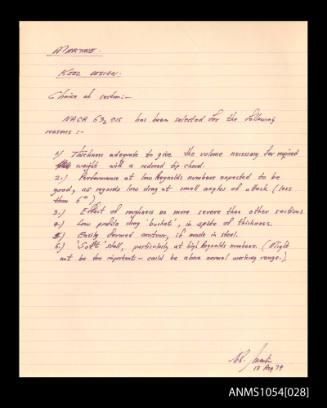 KEEL DESIGN.
Choice of section:—
NACA 63₂ 015 has been selected for the following
reasons :-
1) Thickness adequate to give the volume necessary for required
weight with a reduced tip chord.
2.) Performance at low Reynolds numbers expected to be
good, as regards low drag at small angles of attack (less
than 6°)
3.) Effect of roughness no more severe than other sections
4.) Low profile drag 'buckets', in spite of thickness.
5.) Easily formed contour, if made in steel.
6.) 'Soft' stall, particularly at high Reynolds numbers. (Might
not be too important - could be above normal working range.)
18 Aug 79
ANMS1054[028]